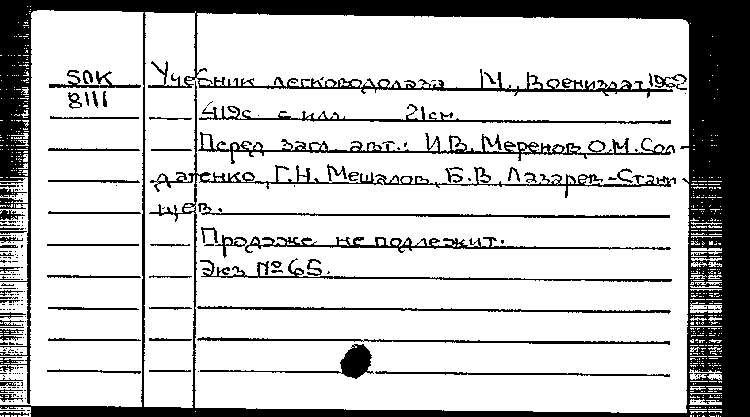 5ПК Учебник легководолаза М., Воениздат, 1962
8111
419с. с илл. 21см.
Перед загл. авт.: И.В. Меренов, О.М. Сол-
датенко, Г.Н. Мешалов, Б.В. Лазарев-Стани-
щев.
Продаже не подлежит.
Экз №65.